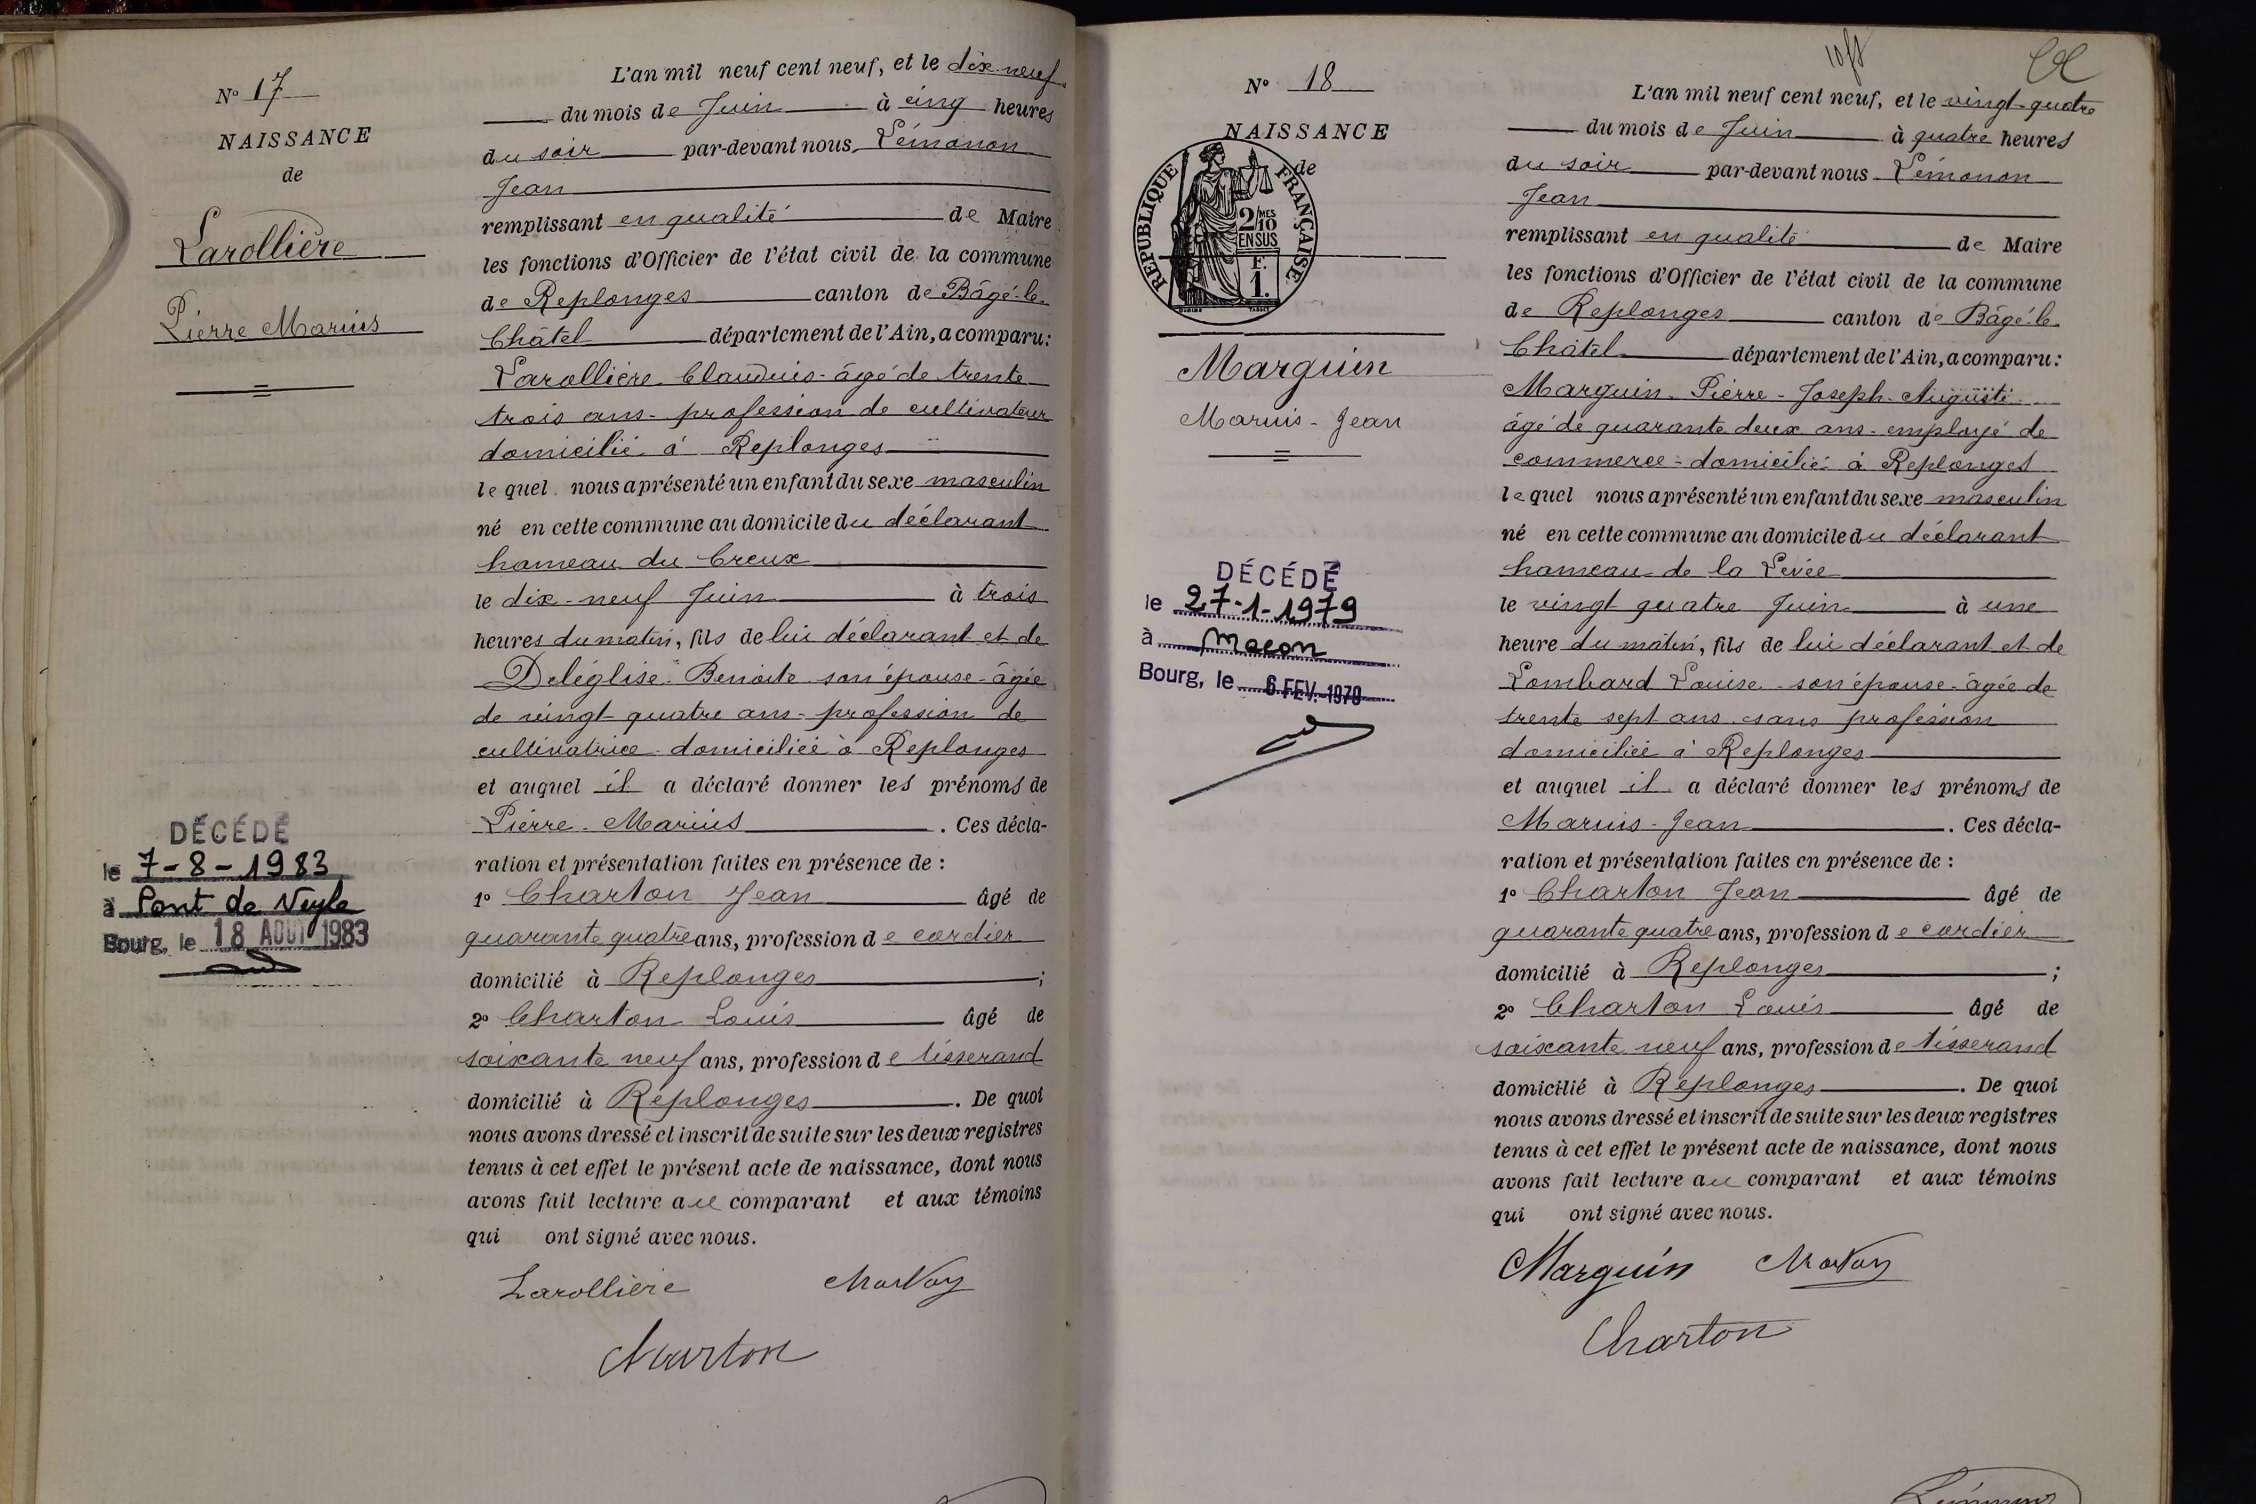 N° 17
NAISSANCE
de
Larollière
Pierre Marius
DÉCÉDÉ
le 7-8-1983
à Pont de Veyle
Bourg, le 18 AOUT 1983
L'an mil neuf cent neuf, et le dix-neuf
du mois de Juin à cinq heures
du soir par-devant nous, Lémonon
Jean
remplissant en qualité de Maire
les fonctions d'Officier de l'état civil de la commune
de Replonges canton de Bâgé-le-
Châtel département de l'Ain, a comparu:
Larollière Claudius - âgé de trente
trois ans - profession de cultivateur
domicilié à Replonges
lequel nous a présenté un enfant du sexe masculin
né en cette commune au domicile du déclarant
hameau du Creux
le dix-neuf Juin à trois
heures du matin, fils de lui déclarant et de
Deléglise Benoite son épouse - âgée
de vingt-quatre ans - profession de
cultivatrice - domiciliée à Replonges
et auquel il a déclaré donner les prénoms de
Pierre - Marius . Ces décla-
ration et présentation faites en présence de :
1° Charton Jean âgé de
quarante quatre ans, profession de cordier
domicilié à Replonges ;
2° Charton Louis âgé de
soixante neuf ans, profession de tisserand
domicilié à Replonges . De quoi
nous avons dressé et inscrit de suite sur les deux registres
tenus à cet effet le présent acte de naissance, dont nous
avons fait lecture au comparant et aux témoins
qui ont signé avec nous.
Larollière
Charton
N° 18
NAISSANCE
de
RÉPUBLIQUE FRANÇAISE
2/10 MES
EN SUS
F.
1.
Marguin
Marius - Jean
DÉCÉDÉ
le 27-1-1979
à Macon
Bourg, le 6 FEV. 1979
L'an mil neuf cent neuf, et le vingt-quatre
du mois de Juin à quatre heures
du soir par-devant nous Lémonon
Jean
remplissant en qualité de Maire
les fonctions d'Officier de l'état civil de la commune
de Replonges canton de Bâgé-le-
Châtel département de l'Ain, a comparu:
Marguin - Pierre - Joseph - Auguste
âgé de quarante deux ans - employé de
commerce - domicilié à Replonges
lequel nous a présenté un enfant du sexe masculin
né en cette commune au domicile du déclarant
hameau de la Levée
le vingt quatre Juin à une
heure du matin, fils de lui déclarant et de
Lombard Louise - son épouse - âgée de
trente sept ans - sans profession
domiciliée à Replonges
et auquel il a déclaré donner les prénoms de
Marius - Jean . Ces décla-
ration et présentation faites en présence de :
1° Charton Jean âgé de
quarante quatre ans, profession de cordier
domicilié à Replonges ;
2° Charton Louis âgé de
soixante neuf ans, profession de tisserand
domicilié à Replonges . De quoi
nous avons dressé et inscrit de suite sur les deux registres
tenus à cet effet le présent acte de naissance, dont nous
avons fait lecture au comparant et aux témoins
qui ont signé avec nous.
Marguin
Charton